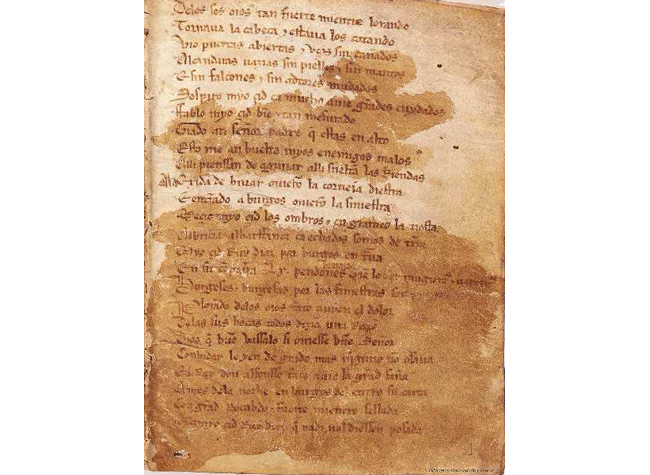 Delos sos oios tan fuerte mientre lorando
Tornaua la cabeça ⁊ estaua los catando
Vio puertas abiertas ⁊ vços sin cañados
Alcandaras uazias sin pielles ⁊ sin mantos
E sin falcones ⁊ sin adtores mudados
Sospiro myo çid ca mucho auie grãdes cuydados
Fablo myo çid biẽ ⁊ tan mesurado
Grado ati señor padre q̃ estas en alto
Esto me an buelto myos enemigos malos
Alli pienssan de aguiiar alli sueltã las riendas
Ala exida de biuar ouierõ la corneia diestra
E entrãdo a burgos ouierõ la siniestra
Meçio myo çid los ombros ⁊ en grameo la tiesta
Albricia albarffanez ca echados somos de tr̃ra
Myo çid Ruy diaz por burgos en trãua
En su cõpaña Lx pendones
Burgeses ⁊ burgesas por las finiestras
Plorãdo delos oios tãto auyen el dolor
Delas sus bocas todos dizian una razõ
Dios q̃ buẽ vassalo si ouiesse buẽ señor
Conbidar le yen de grado mas ninguno no osaua
El Rey don alfonsso tãto auie la grãd saña
Antes dela noche en burgos del entro su carta
Con grãd Recabdo ⁊ fuerte mientre sellada
Que a myo çid Ruy diaz q̃ nadi nol diessen posada